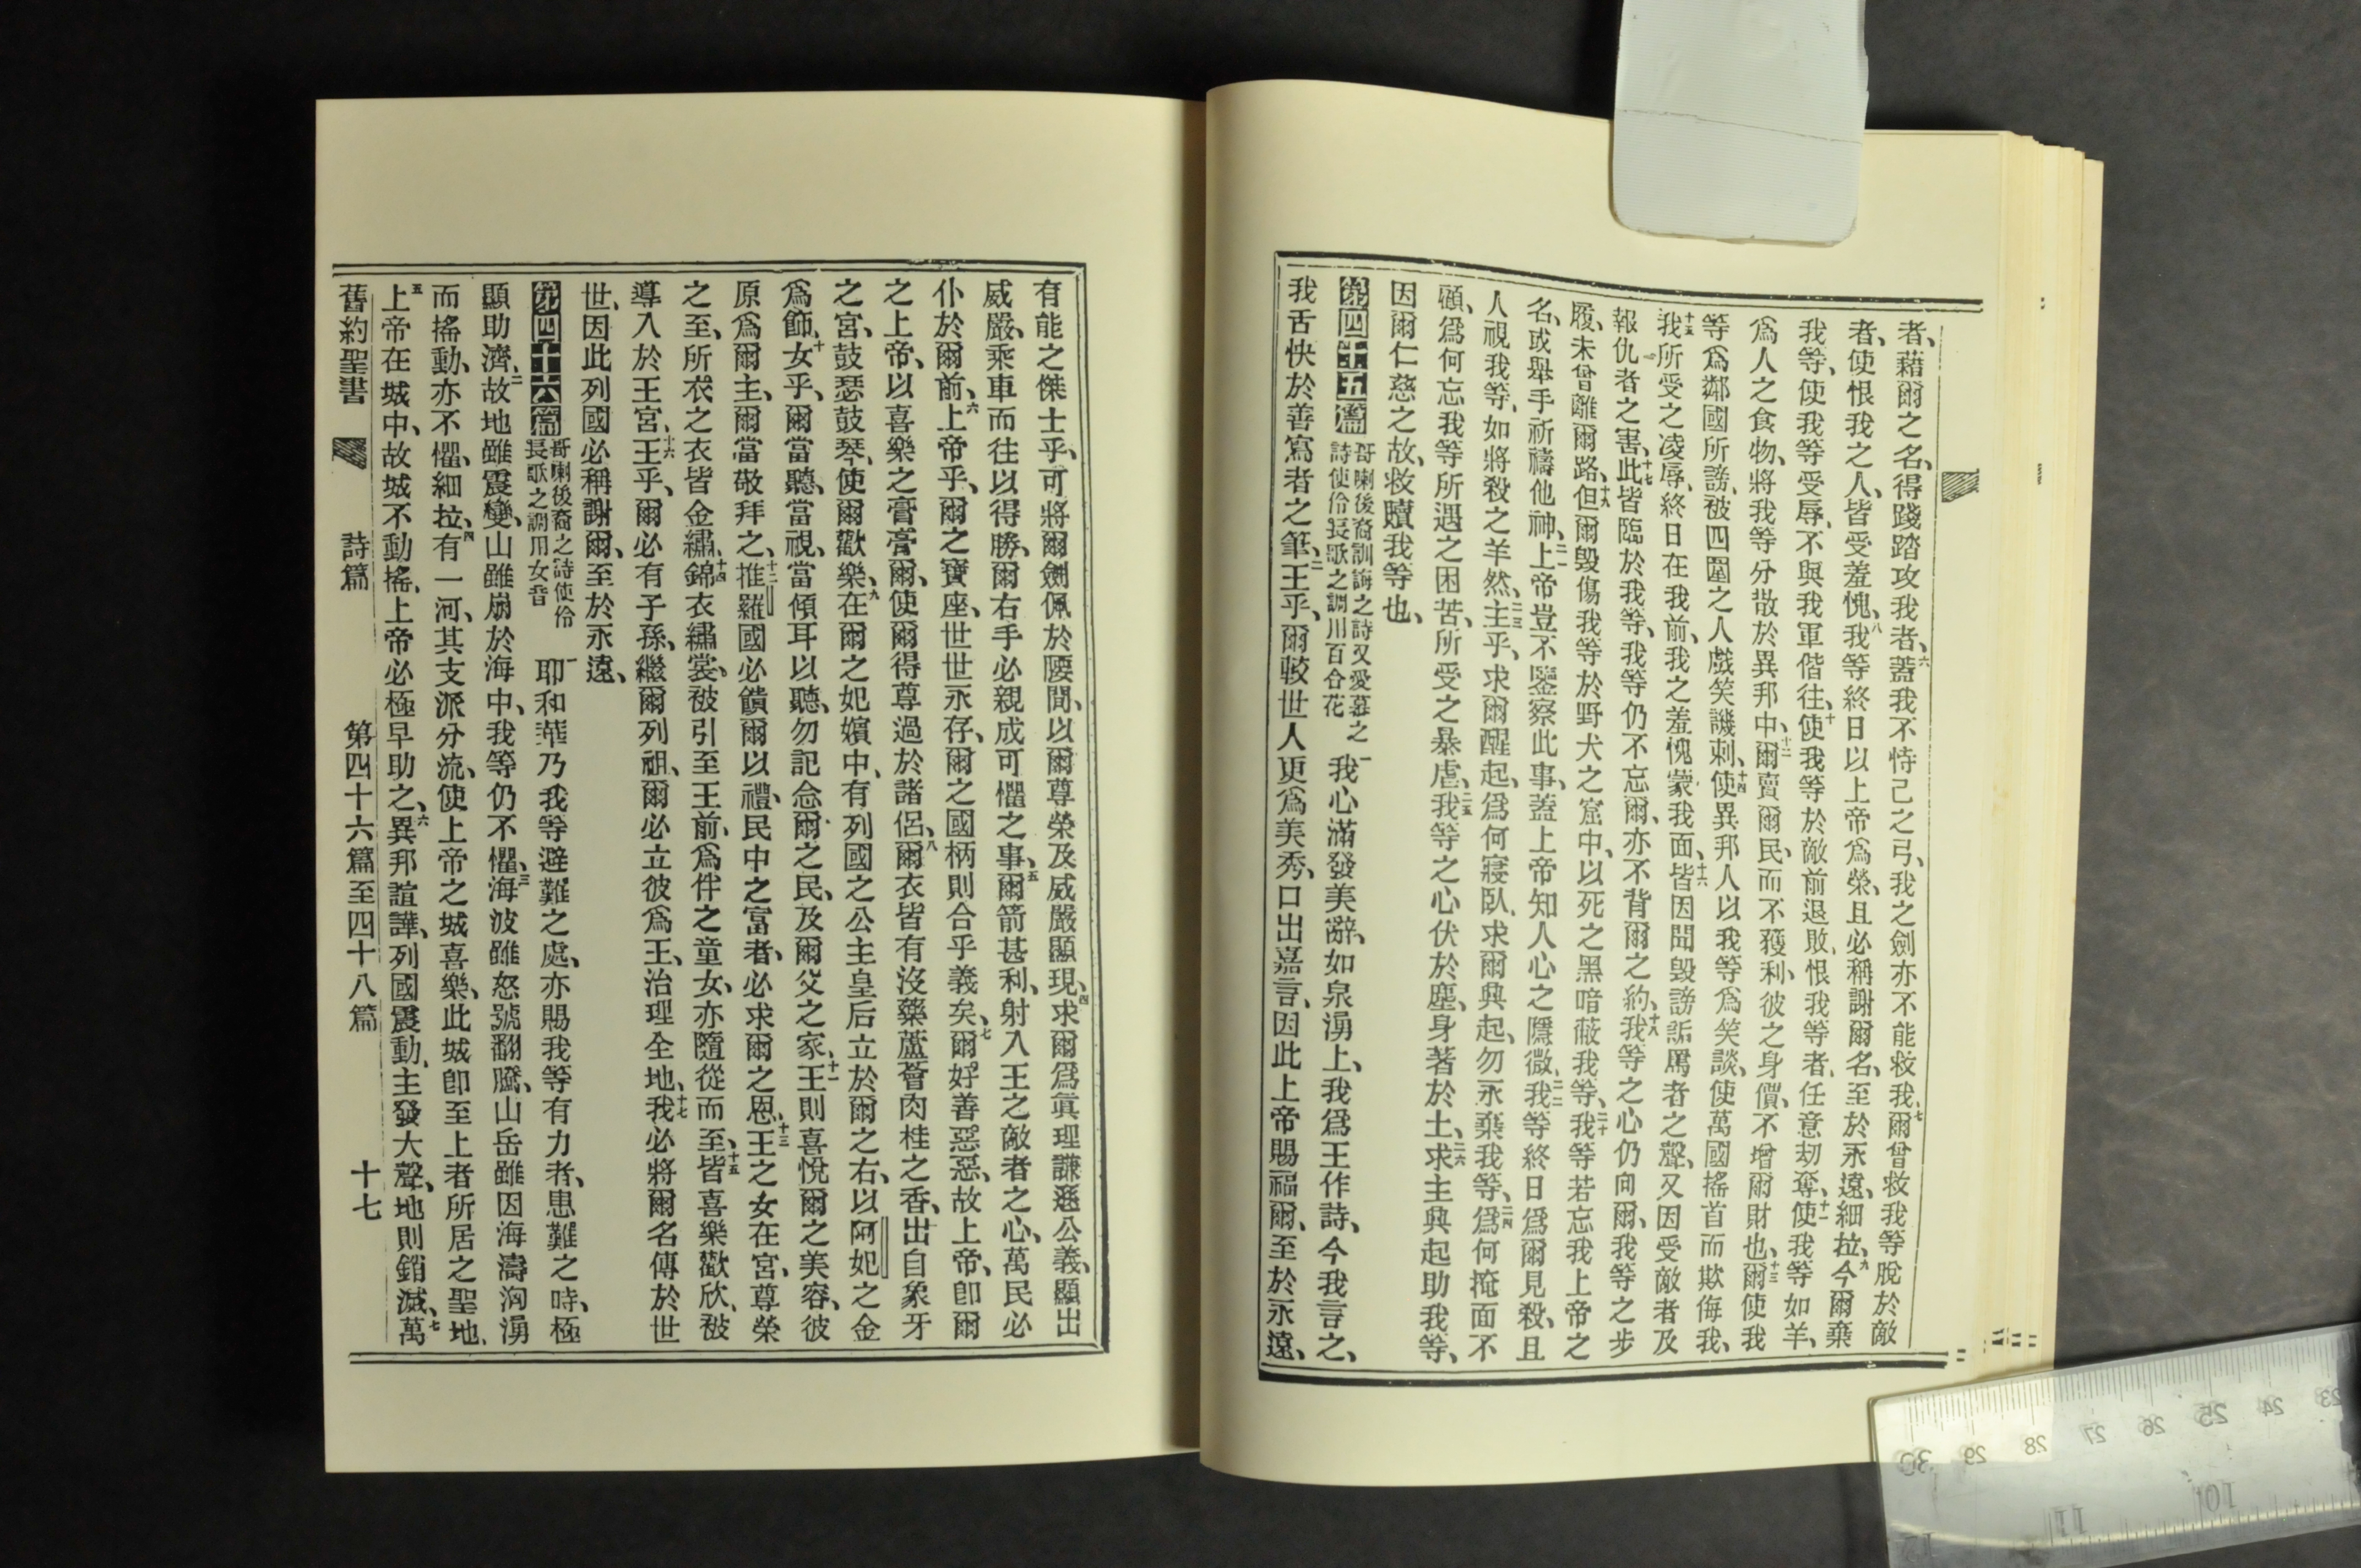 者、藉爾之名、得踐踏攻我者、六蓋我不恃己之弓、我之劍亦不能救我、七爾曾救我等脫於敵
者、使恨我之人、皆受羞愧、八我等終日以上帝爲榮、且必稱謝爾名、至於永遠、細拉、九今爾棄
我等、使我等受辱、不與我軍偕往、十使我等於敵前退敗、恨我等者、任意刧奪、十一使我等如羊、
爲人之食物、將我等分散於異邦中、十二爾賣爾民、而不獲利、彼之身價、不增爾財也、十三爾使我
等爲鄰國所謗、被四圍之人戲笑譏刺、十四使異邦人以我等爲笑談、使萬國搖首而欺侮我、
十五我所受之凌辱、終日在我前、我之羞愧蒙我面、十六皆因聞毀謗詬厲者之聲、又因受敵者及
報仇者之害、十七此皆臨於我等、我等仍不忘爾、亦不背爾之約、十八我等之心仍向爾、我等之步
履、未曾離爾路、十九但爾毀傷我等於野犬之窟中、以死之黑暗蔽我等、二十我等若忘我上帝之
名、或舉手祈禱他神、二一上帝豈不鑒察此事、蓋上帝知人心之隱微、二二我等終日爲爾見殺、且
人視我等、如將殺之羊然、二三主乎、求爾醒起、爲何寢臥、求爾興起、勿永棄我等、二四爲何掩面不
顧、爲何忘我等所遇之困苦、所受之暴虐、二五我等之心伏於塵、身著於土、二六求主興起助我等、
因爾仁慈之故、救贖我等也、
第四十五篇 哥喇後裔訓誨之詩又愛慕之詩使伶長歌之調用百合花 一我心滿發美辭、如泉湧上、我爲王作詩、今我言之、
我舌快於善寫者之筆、二王乎、爾較世人更爲美秀、口出嘉言、因此上帝賜福爾、至於永遠、
有能之傑士乎、可將爾劍佩於腰間、以爾尊榮及威嚴顯現、四求爾爲眞理謙遜公義、顯出
威嚴、乘車而往以得勝、爾右手必親成可懼之事、五爾箭甚利、射入王之敵者之心、萬民必
仆於爾前、六上帝乎、爾之寶座、世世永存、爾之國柄則合乎義矣、七爾好善惡惡、故上帝、卽爾
之上帝、以喜樂之膏膏爾、使爾得尊過於諸侶、八爾衣皆有沒藥蘆薈肉桂之香、出自象牙
之宮、鼓瑟鼓琴、使爾歡樂、九在爾之妃嬪中、有列國之公主皇后立於爾之右、以阿妃之金
爲飾、十女乎、爾當聽、當視、當傾耳以聽、勿記念爾之民、及爾父之家、十一王則喜悅爾之美容、彼
原爲爾主、爾當敬拜之、十二推羅國必饋爾以禮、民中之富者、必求爾之恩、十三王之女在宮、尊榮
之至、所衣之衣皆金繡、十四錦衣繡裳、被引至王前、爲伴之童女、亦隨從而至、十五皆喜樂歡欣、被
導入於王宮、十六王乎、爾必有子孫、繼爾列祖、爾必立彼爲王、治理全地、十七我必將爾名傳於世
世、因此列國必稱謝爾、至於永遠、
第四十六篇 哥喇後裔之詩使伶長歌之調用女音 一耶和華乃我等避難之處、亦賜我等有力者、患難之時、極
顯助濟、二故地雖震變、山雖崩於海中、我等仍不懼、三海波雖怒號翻騰、山岳雖因海濤洶湧
而搖動、亦不懼、細拉、四有一河、其支派分流、使上帝之城喜樂、此城卽至上者所居之聖地、
五上帝在城中、故城不動搖、上帝必極早助之、六異邦諠譁、列國震動、主發大聲、地則銷滅、七萬
舊約聖書 詩篇 第四十六篇至四十八篇 十七